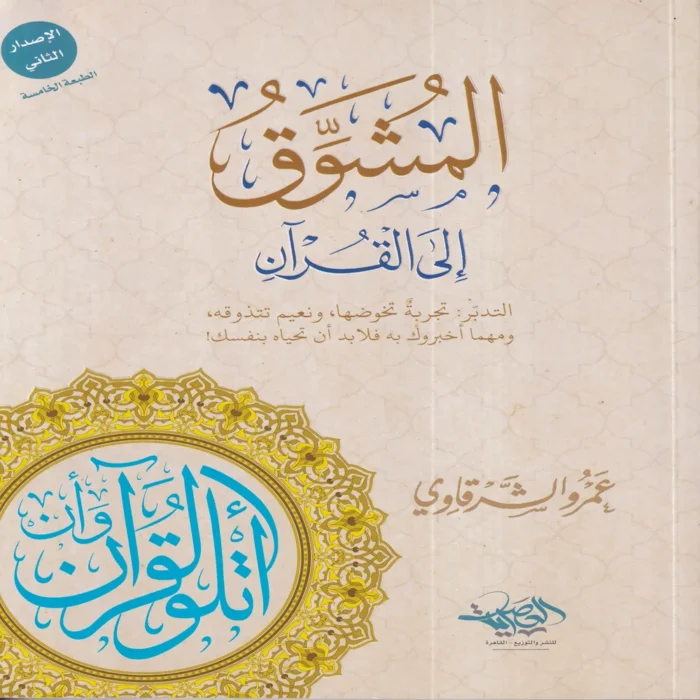 الإصدار
الثاني
الطبعة الخامسة
المُشوَّقُ
إلَى القُرآنِ
التدبّر: تجربةٌ تخوضها، ونعيم تتذوقه،
ومهما أخبروك به فلابد أن تحياه بنفسك!
وأن أتلو القرآن
عمرو الشَّرقاوي
للنشر والتوزيع - القاهرة